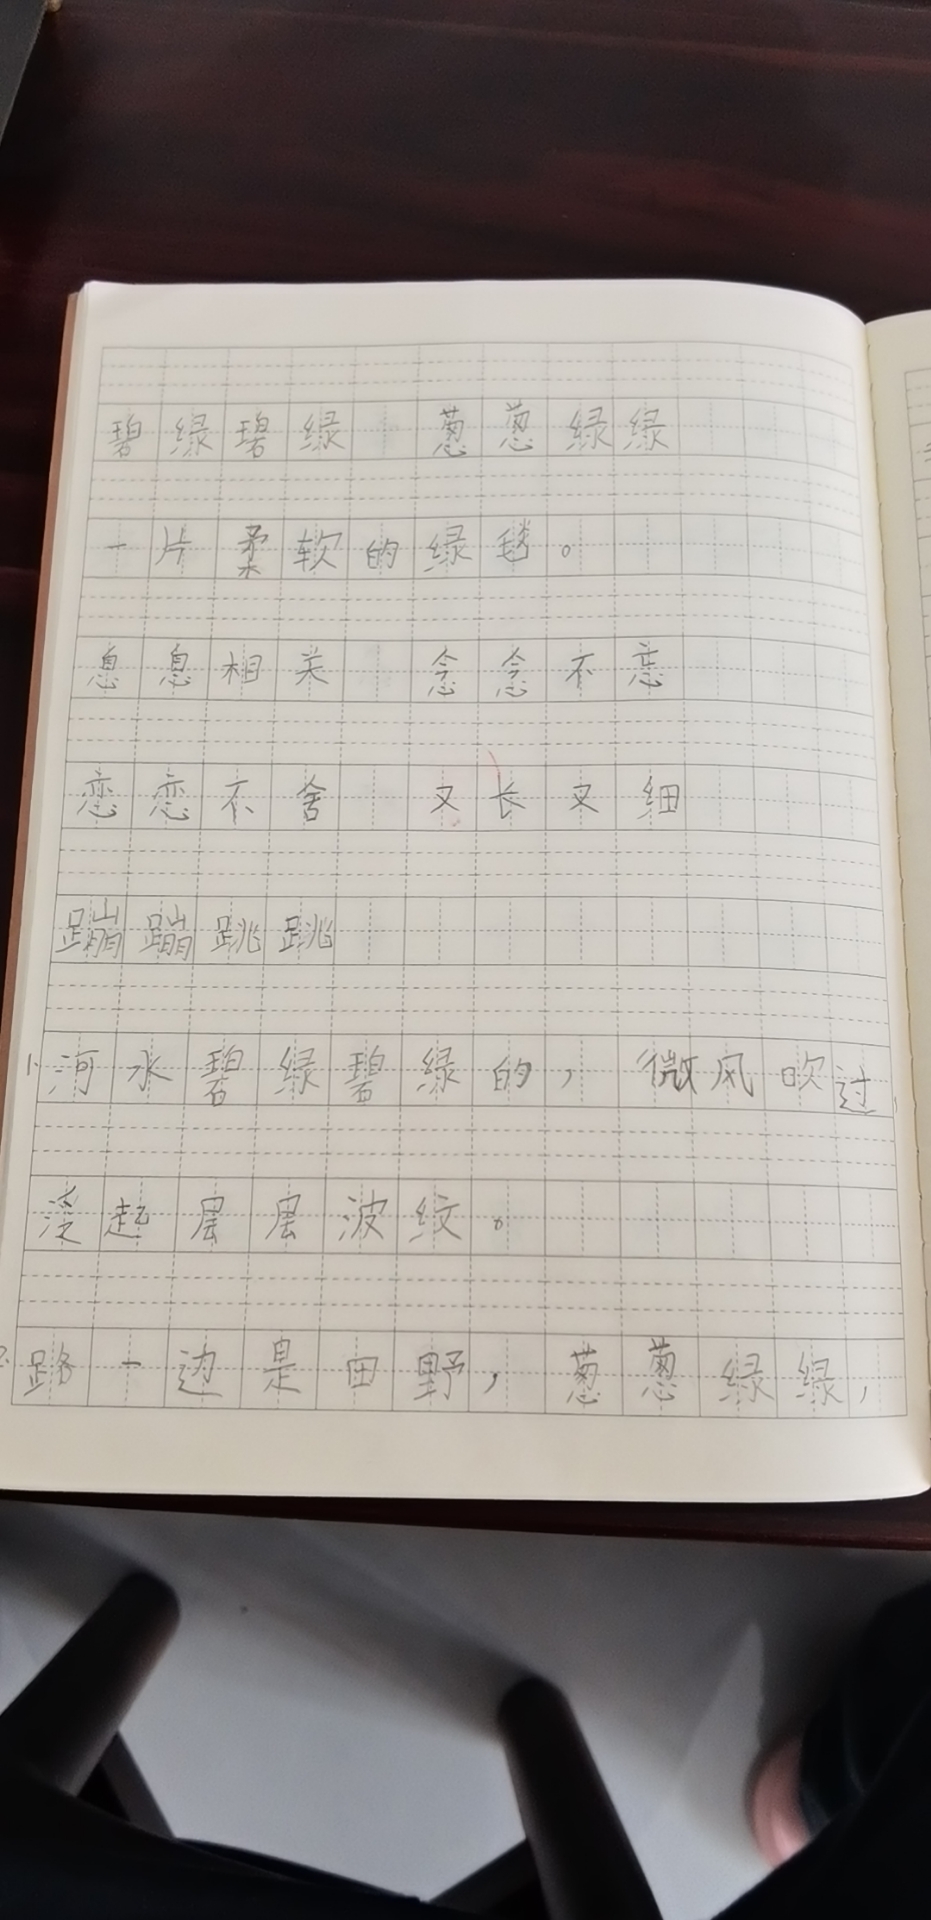 碧绿碧绿 葱葱绿绿
一片柔软的绿毯。
息息相关 念念不忘
恋恋不舍 又长又细
蹦蹦跳跳
1、河水碧绿碧绿的，微风吹过，
泛起层层波纹。
2、路一边是田野，葱葱绿绿，